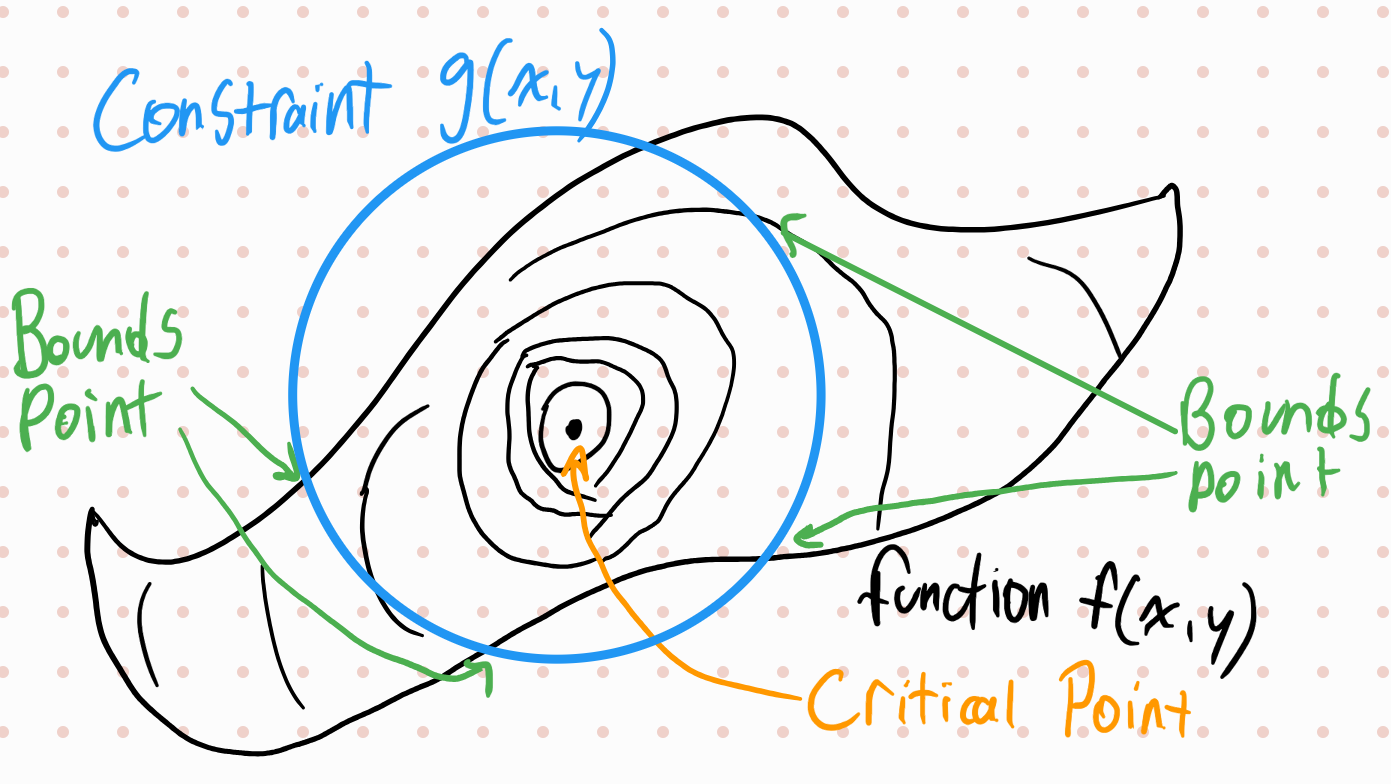 Constraint g(x,y)
Bounds
Point
Bounds
point
function f(x,y)
Critical Point